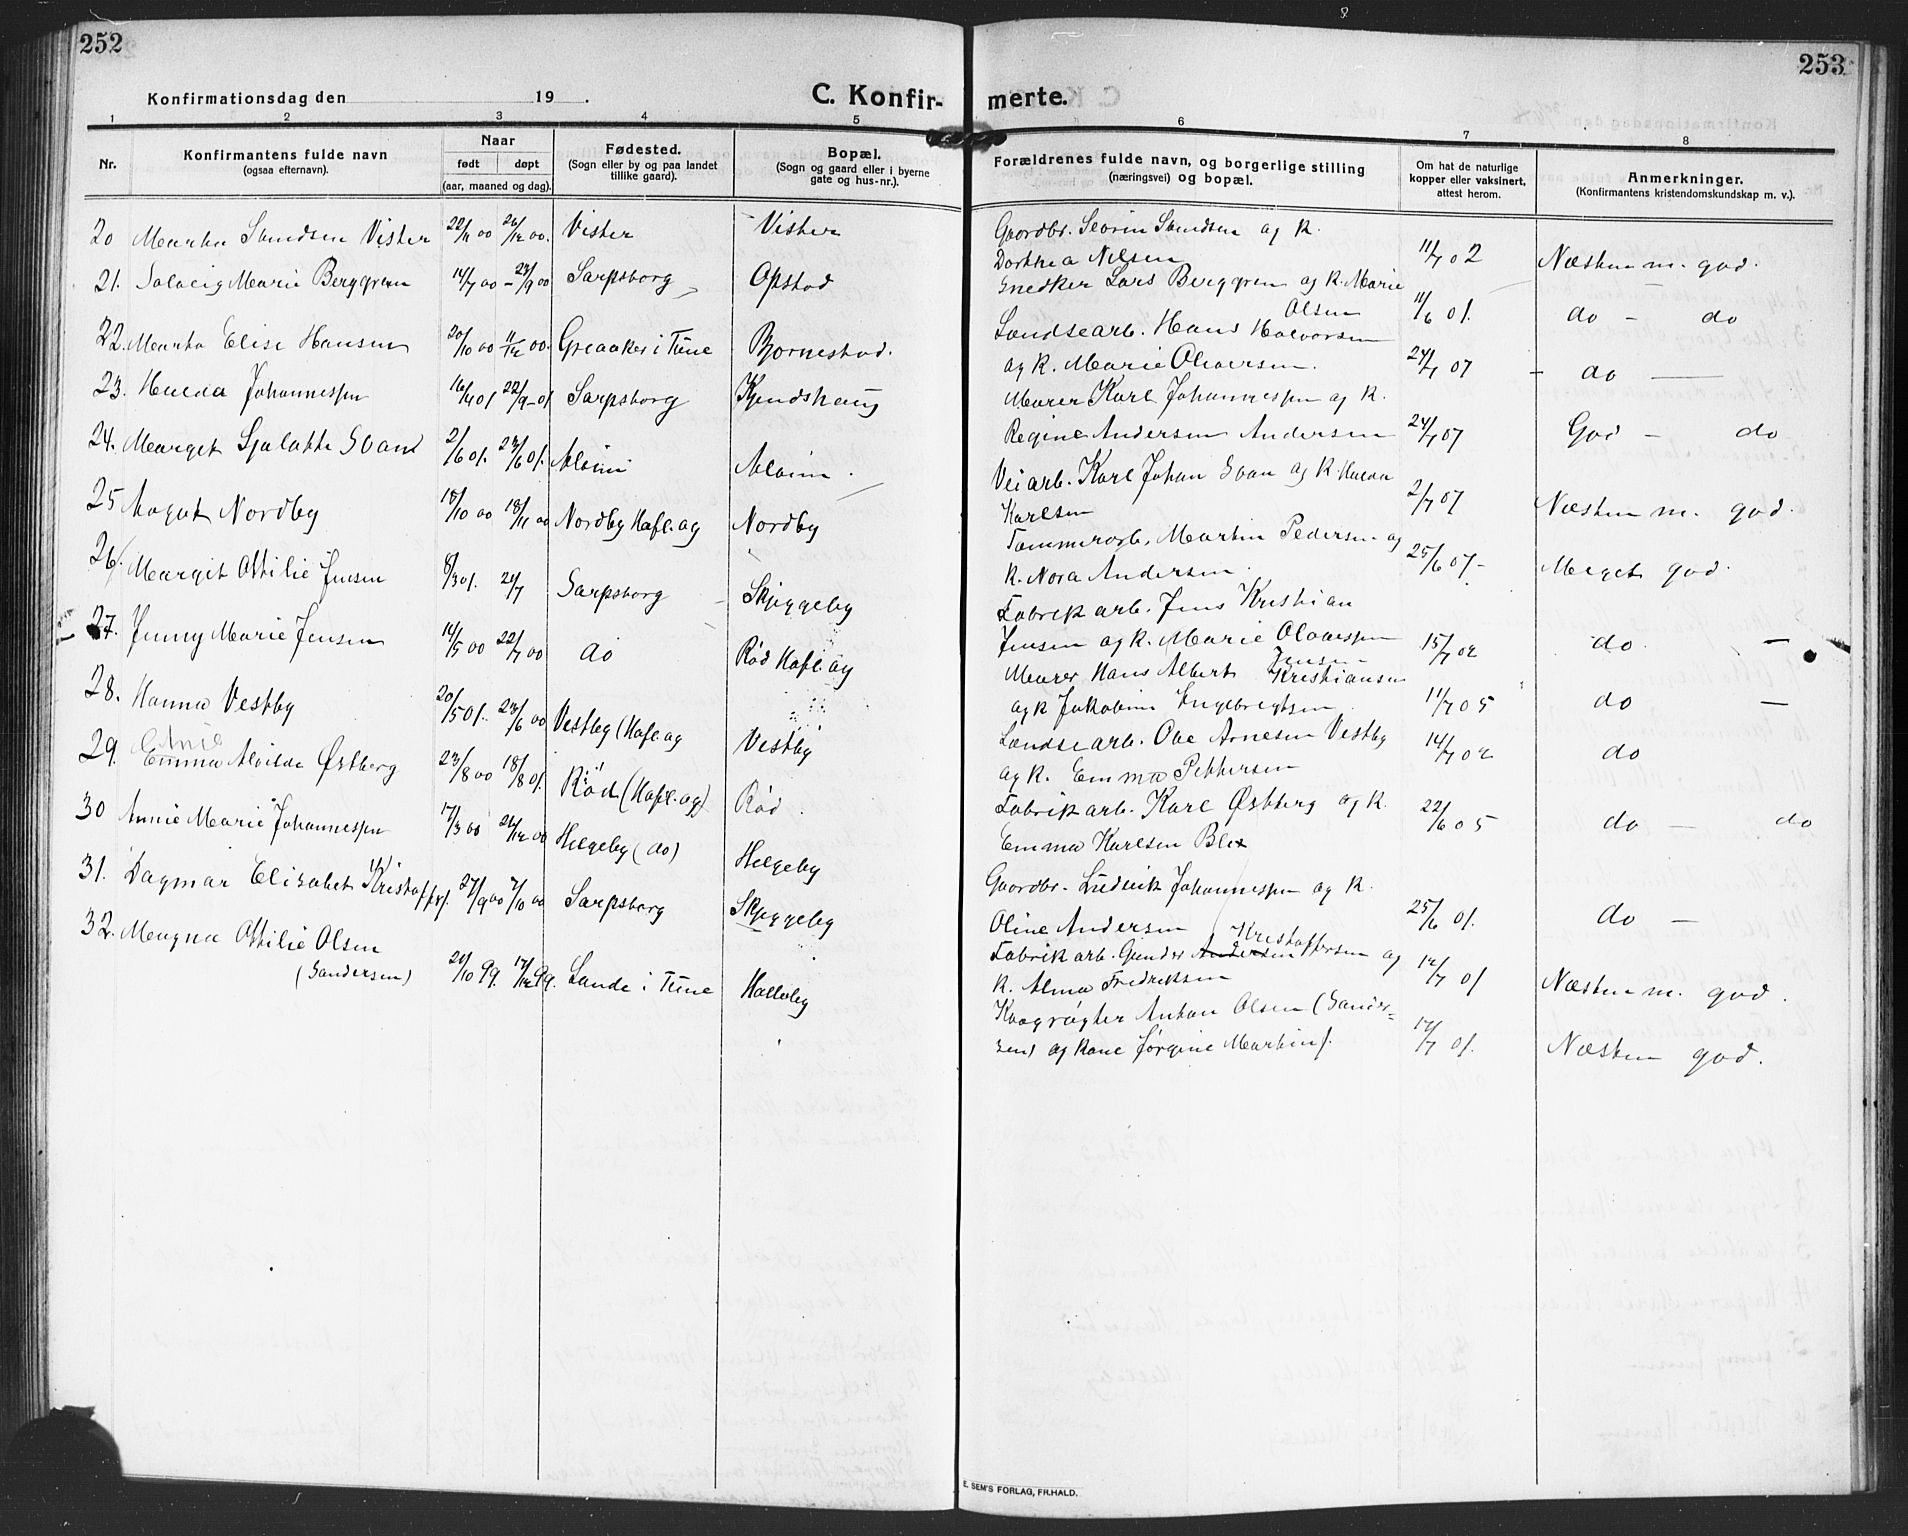 252
Konfirmationsdag den 19 .
C. Konfir-
1 2 3 4 5
Nr.
Konfirmantens fulde navn
(ogsaa efternavn).
Naar
født døpt
(aar, maaned og dag).
Fødested.
(Sogn eller by og paa landet
tillike gaard).
Bopæl.
(Sogn og gaard eller i byerne
gate og hus-nr.).
20 Marta Samdsen Vister 22/11 00 26/12 00. Vister Vister
21. Solveig Marie Berggren 14/7 00 – 23/9 00 Sarpsborg Opstad
22. Marta Elise Hansen 20/10 00 11/12 00. Greaaker i Tune Bjørnestad.
23. Hulda Johannessen 16/4 01 22/9 – 01 Sarpsborg Kjendshaug
24. Marget Sjalotte Svan 2/6 01. 23/6 01. Alvim Alvim.
25 Aagot Nordby 18/10 00 18/11 00 Nordby Hafl.ag Nordby
26. Margit Ottilie Jensen 8/3 01. 21/7 Sarpsborg Skjeggeby
27. Jenny Marie Jensen 14/5 00 22/7 00 do Rød Hafl.ag
28. Hanna Vestby 20/5 01. 23/6 00 Vestby (Hafl.ag Vestby
29. Emma Alvilde Østberg 23/8 00 18/8 01. Rød (Hafl.ag). Rød.
30 Annie Marie Johannessen 17/3 00 26/12 00 Helgeby (do) Helgeby
31. Dagmar Elisabet Kristoffers. 27/9 00 7/10 00 Sarpsborg Skjeggeby
32. Magna Ottilie Olsen 21/10 99. 17/12 99. Lande i Tune Hallaby
(Sandersen)
253
merte.
6 7 8
Forældrenes fulde navn, og borgerlige stilling
(næringsvei) og bopæl.
Om hat de naturlige
kopper eller vaksinert,
attest herom.
Anmerkninger.
(Konfirmantens kristendomskundskap m. v.).
Gaardbr. Severin Samdsen og k.
Dorthea Nilsen 11/7 02 Næsten m. god.
Snedker Lars Berggren og k. Marie
Olsen 11/6 01. do – do
Landsearb. Hans Halvorsen
og k. Marie Oliversen. 24/7 07 – do –
Murer Karl Johannessen og k.
Regine Andersen Andersen 24/7 07 God – do
Veiarb. Karl Johan Svan og k. Hulda
Karlsen 2/7 07 Næsten m. god.
Tømmerarb. Martin Pedersen og
k. Nora Andersen. 25/6 07 – Meget god.
Fabrikarb. Jens Kristian
Jensen og k. Marie Olavessen 15/7 02 do. –
Jensen
Murer Hans Albert Kristiansen
og k Jakobine Ingebregtsen 11/7 05 do –
Landsearb. Ole Arnesen Vestby
og k. Emma Pettersen 14/7 02 do
Fabrikarb. Karl Østberg og k.
Emma Karlsen Blix 22/6 05 do – do
Gaardbr. Ludvik Johannessen og k.
Oline Andersen 25/6 01. do –
Kristoffersen
Fabrikarb. Gunder Andersen og
k. Alma Fredriksen 12/7 01 Næsten m. god.
Kaagrøgter Anton Olsen (Sander-
sen) og kone Jørgine Martins. 17/7 01. Næsten god.
E. SEM'S FORLAG, FR.HALD.